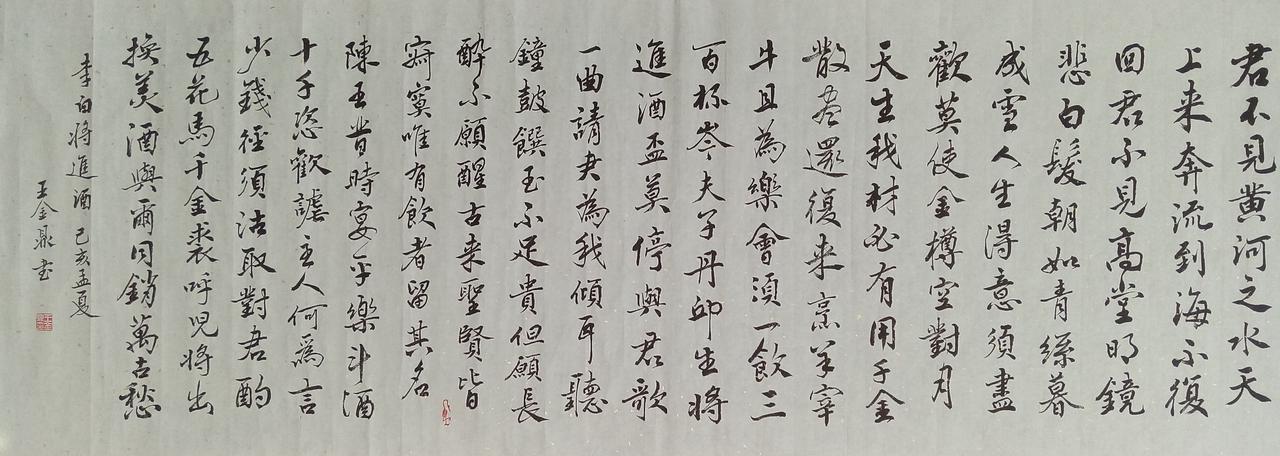 君不見黄河之水天
上来奔流到海不復
回君不見高堂明鏡
悲白髮朝如青絲暮
成雪人生得意須盡
歡莫使金樽空對月
天生我材必有用千金
散盡還復来烹羊宰
牛且為樂會須一飲三
百杯岑夫子丹邱生將
進酒盃莫停與君歌
一曲請君為我傾耳聽
鐘鼓饌玉不足貴但願長
醉不願醒古来聖賢皆
寂寞唯有飲者留其名
陳王昔時宴平樂斗酒
十千恣歡謔主人何爲言
少錢徑須沽取對君酌
五花馬千金裘呼児將出
換美酒與爾同銷萬古愁
李白將進酒 己亥孟夏
王金鼎书